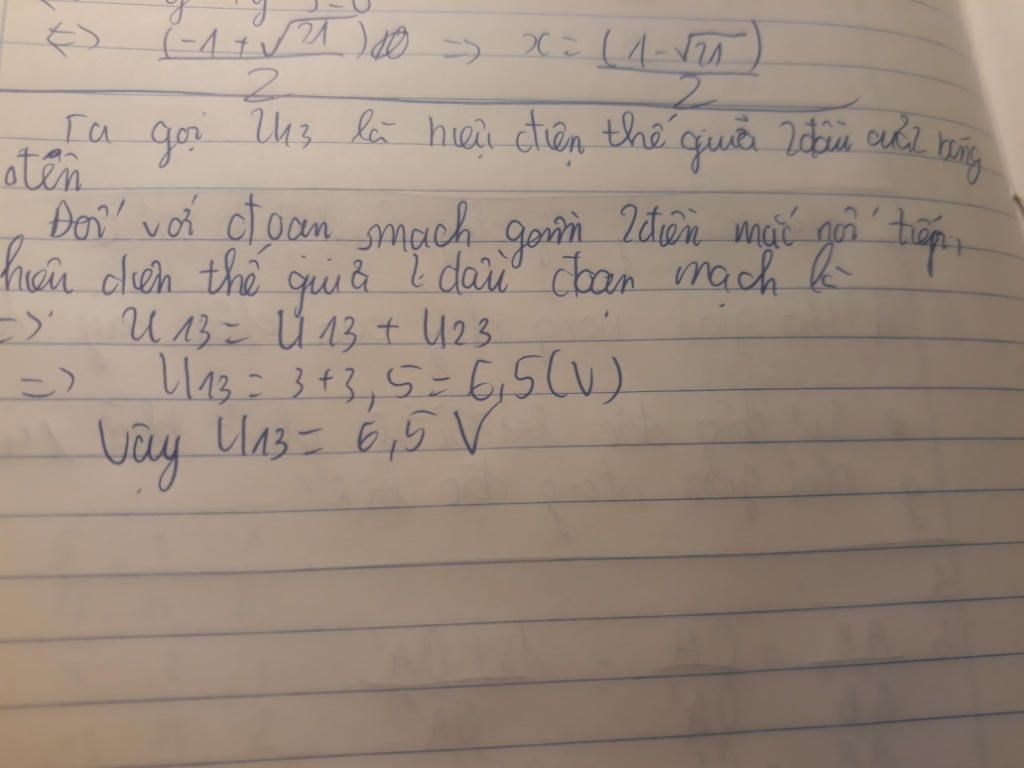 <=> (-1+√21) / 2 => x = (1-√21) / 2
Ta gọi U13 là hiệu điện thế giữa 2 đầu bóng
đèn
Đối với đoạn mạch gồm 2 đèn mắc nối tiếp,
hiệu điện thế giữa 2 đầu đoạn mạch là
=> U13 = U13 + U23
=> U13 = 3 + 3,5 = 6,5 (V)
Vậy U13 = 6,5 V